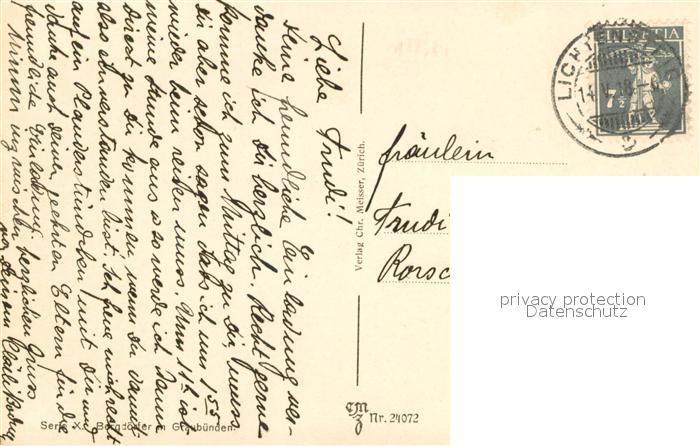 Liebe Trudi!
Deine freundliche Einladung ver-
danke ich Dir herzlich. Recht gerne
komme ich zum Mittag zu Dir, muss
dir aber schon sagen dass ich um 1 55
wieder heim reisen muss. Um 11
meine Stunde aus u. so werde ich dann
direkt zu dir kommen wenn Du damit
also einverstanden bist. Ich freue mich recht
auf ein Plauderstündchen mit Dir und
danke auch deinen geehrten Eltern für die
freundliche Einladung.
herzlichen Gruss
von deinem
Serie X. Bergdörfer in Graubünden.
Verlag Chr. Meisser, Zürich.
Nr. 24072
HELVETIA
7½
LICHTENSTEIG
14.V.18.
Fräulein
Trudi
Rorsc
privacy protection
Datenschutz